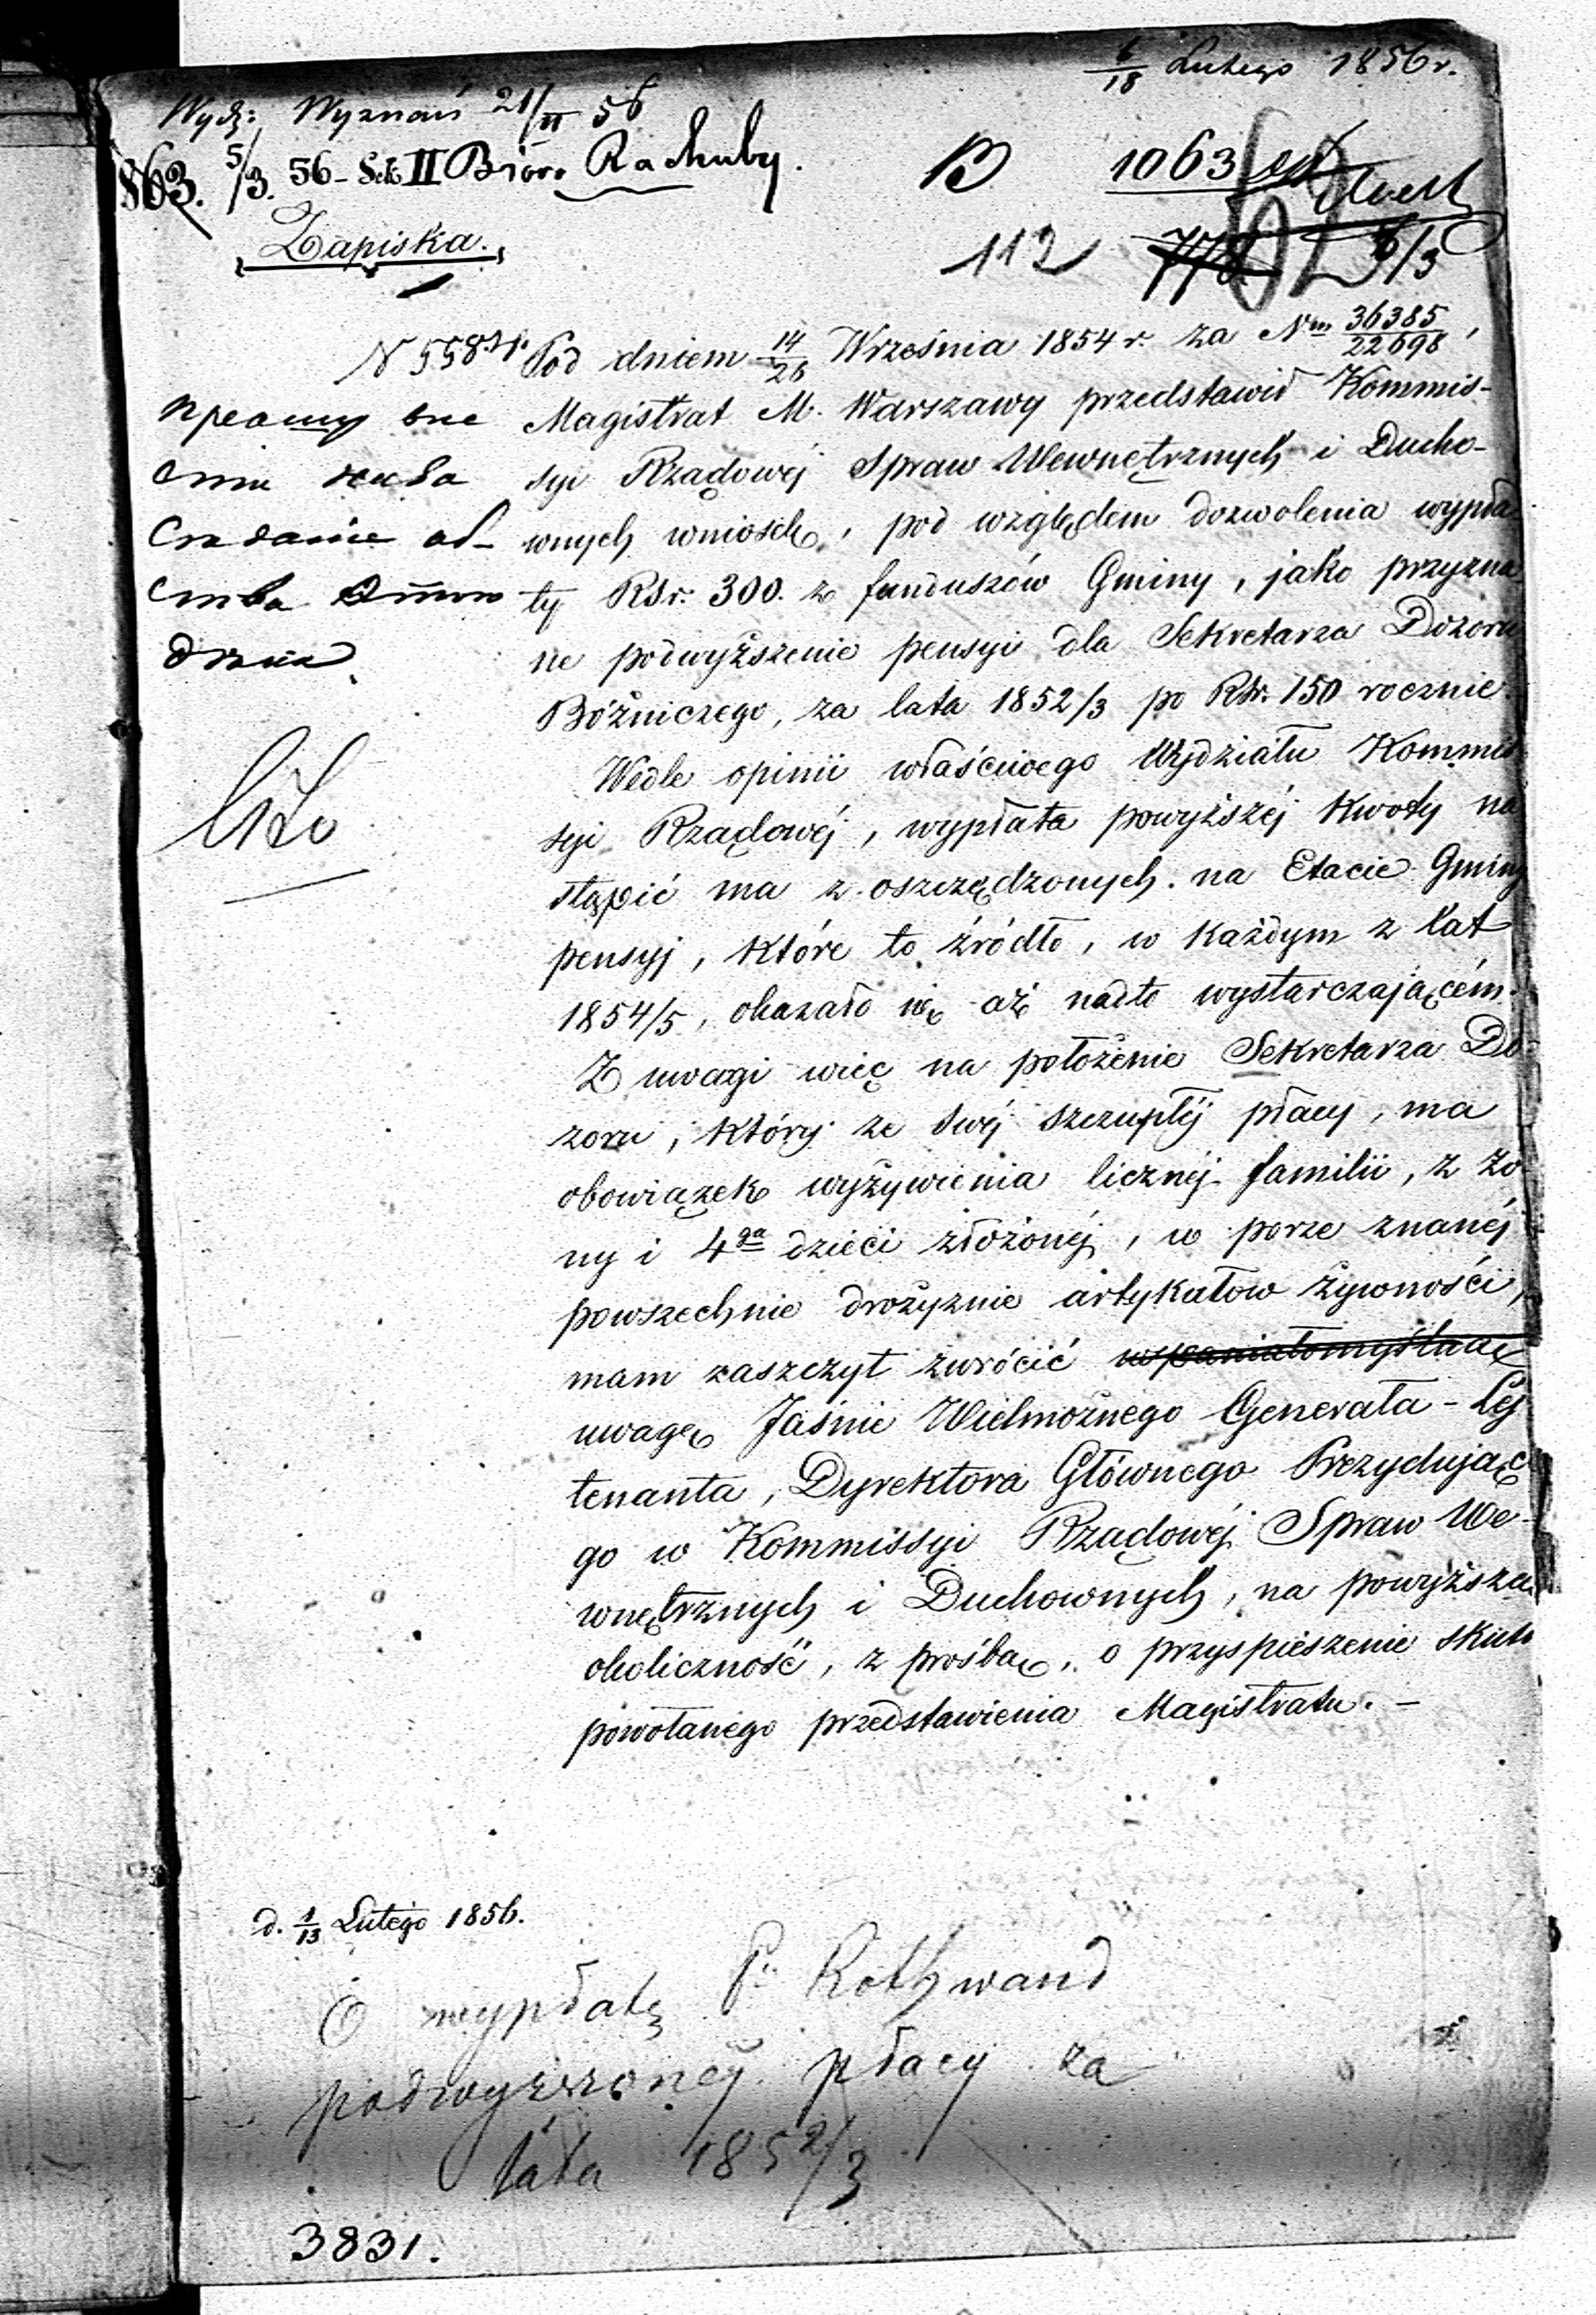 6/18 Lutego 1856 r.
Wydz: Wyznań 21/II 56
863. 5/3. 56 - Sek II Bióro Rachuby.
B 1063
Zapiska.
112 778 6/3
N 558
Pod dniem 14/26 Września 1854 r. za Nrm 36385/22698,
Magistrat M. Warszawy przedstawił Kommis-
syi Rządowéj Spraw Wewnętrznych i Ducho-
wnych wniosek, pod względem dozwolenia wypła
ty RSr. 300. z funduszów Gminy, jako przyzna
ne podwyższenie pensyi dla Sekretarza Dozoru
Bóżniczego, za lata 1852/3 po RSr. 150 rocznie.
Wedle opinii właściwego Wydziału Kommis
syi Rządowéj, wypłata powyższéj kwoty na
stąpić ma z oszczędzonych na Etacie Gminy
pensyj, które to źródło, w każdym z lat
1854/5, okazało się aż nadto wystarczającém.
Z uwagi więc na położenie Sekretarza Do
zoru, który ze swéj szczupłéj płacy, ma
obowiązek wyżywienia licznéj familii, z żo
ny i 4ga dzieci złożonéj, w porze znanéj
powszechnie drożyznie artykułow żywności,
mam zaszczyt zwrócić wspaniałomyślną
uwagę Jaśnie Wielmożnego Generała-Lej
tenanta, Dyrektora Głównego Prezydując
go w Kommissyi Rządowéj Spraw We-
wnętrznych i Duchownych, na powyższą
okoliczność, z prośbą, o przyspieszenie skutk
powołanego przedstawienia Magistratu. -
Cito
d. 1/13 Lutego 1856.
O wypłatę P. Rothwand
podwyższonéj płacy za
lata 1852/3
3831.